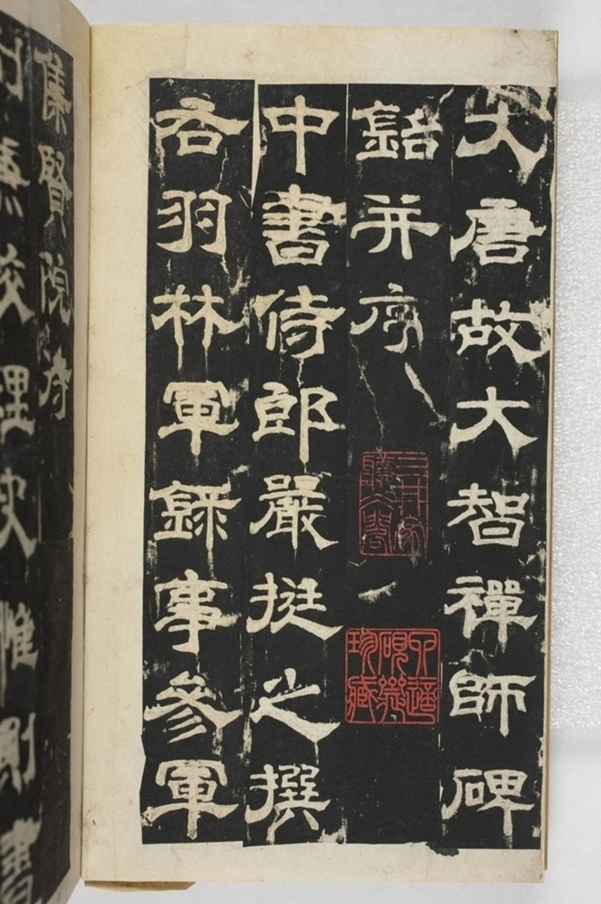 大唐故大智禪師碑
銘并序
中書侍郎嚴挺之撰
右羽林軍錄事參軍
集賢院待
制兼校理史惟則書